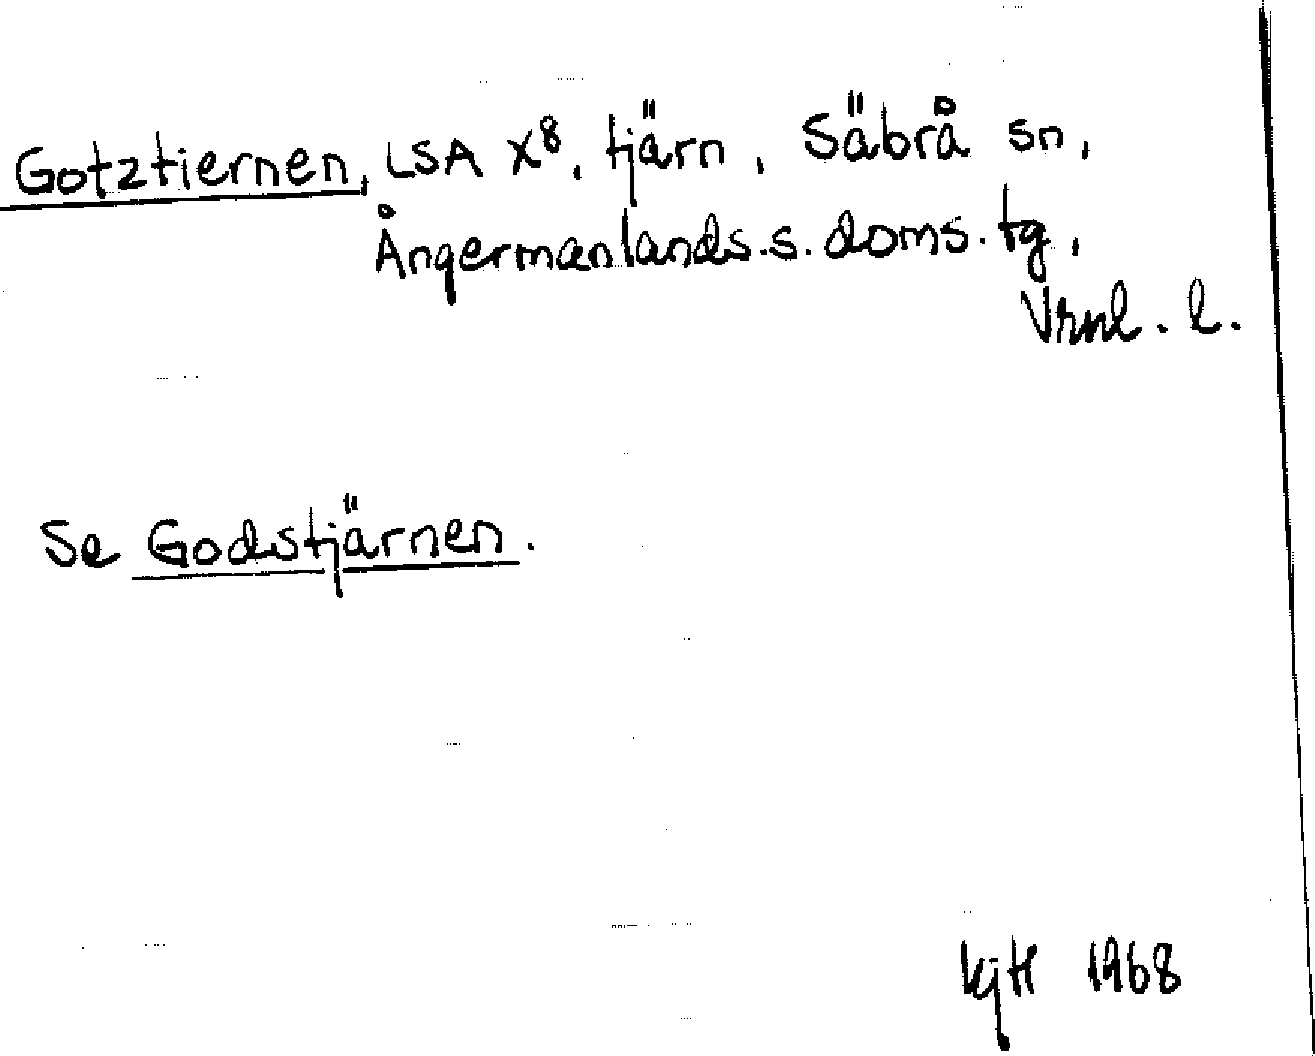 Gotztiernen, LSA X⁸, tjärn, Säbrå sn,
Ångermanlands.s.doms.tg,
Vrnl. l.
Se Godstjärnen.
1968